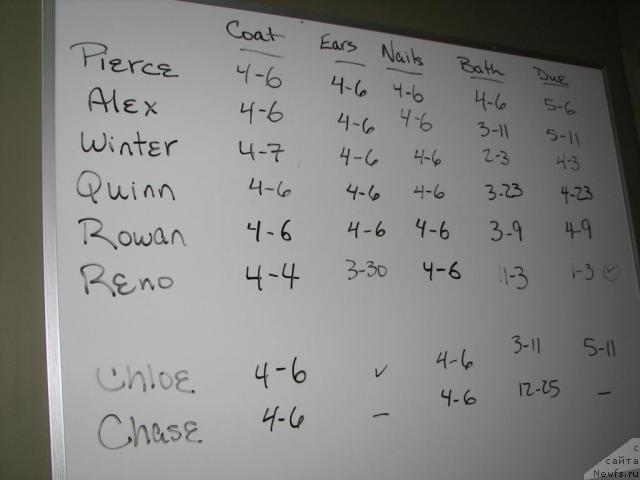 Coat Ears Nails Bath Due
Pierce 4-6 4-6 4-6 4-6 5-6
Alex 4-6 4-6 4-6 3-11 5-11
Winter 4-7 4-6 4-6 2-3 4-3
Quinn 4-6 4-6 4-6 3-23 4-23
Rowan 4-6 4-6 4-6 3-9 4-9
Reno 4-4 3-30 4-6 11-3 1-3 ✓
Chloe 4-6 ✓ 4-6 3-11 5-11
Chase 4-6 — 4-6 12-25 —
с
сайта
Newfs.ru